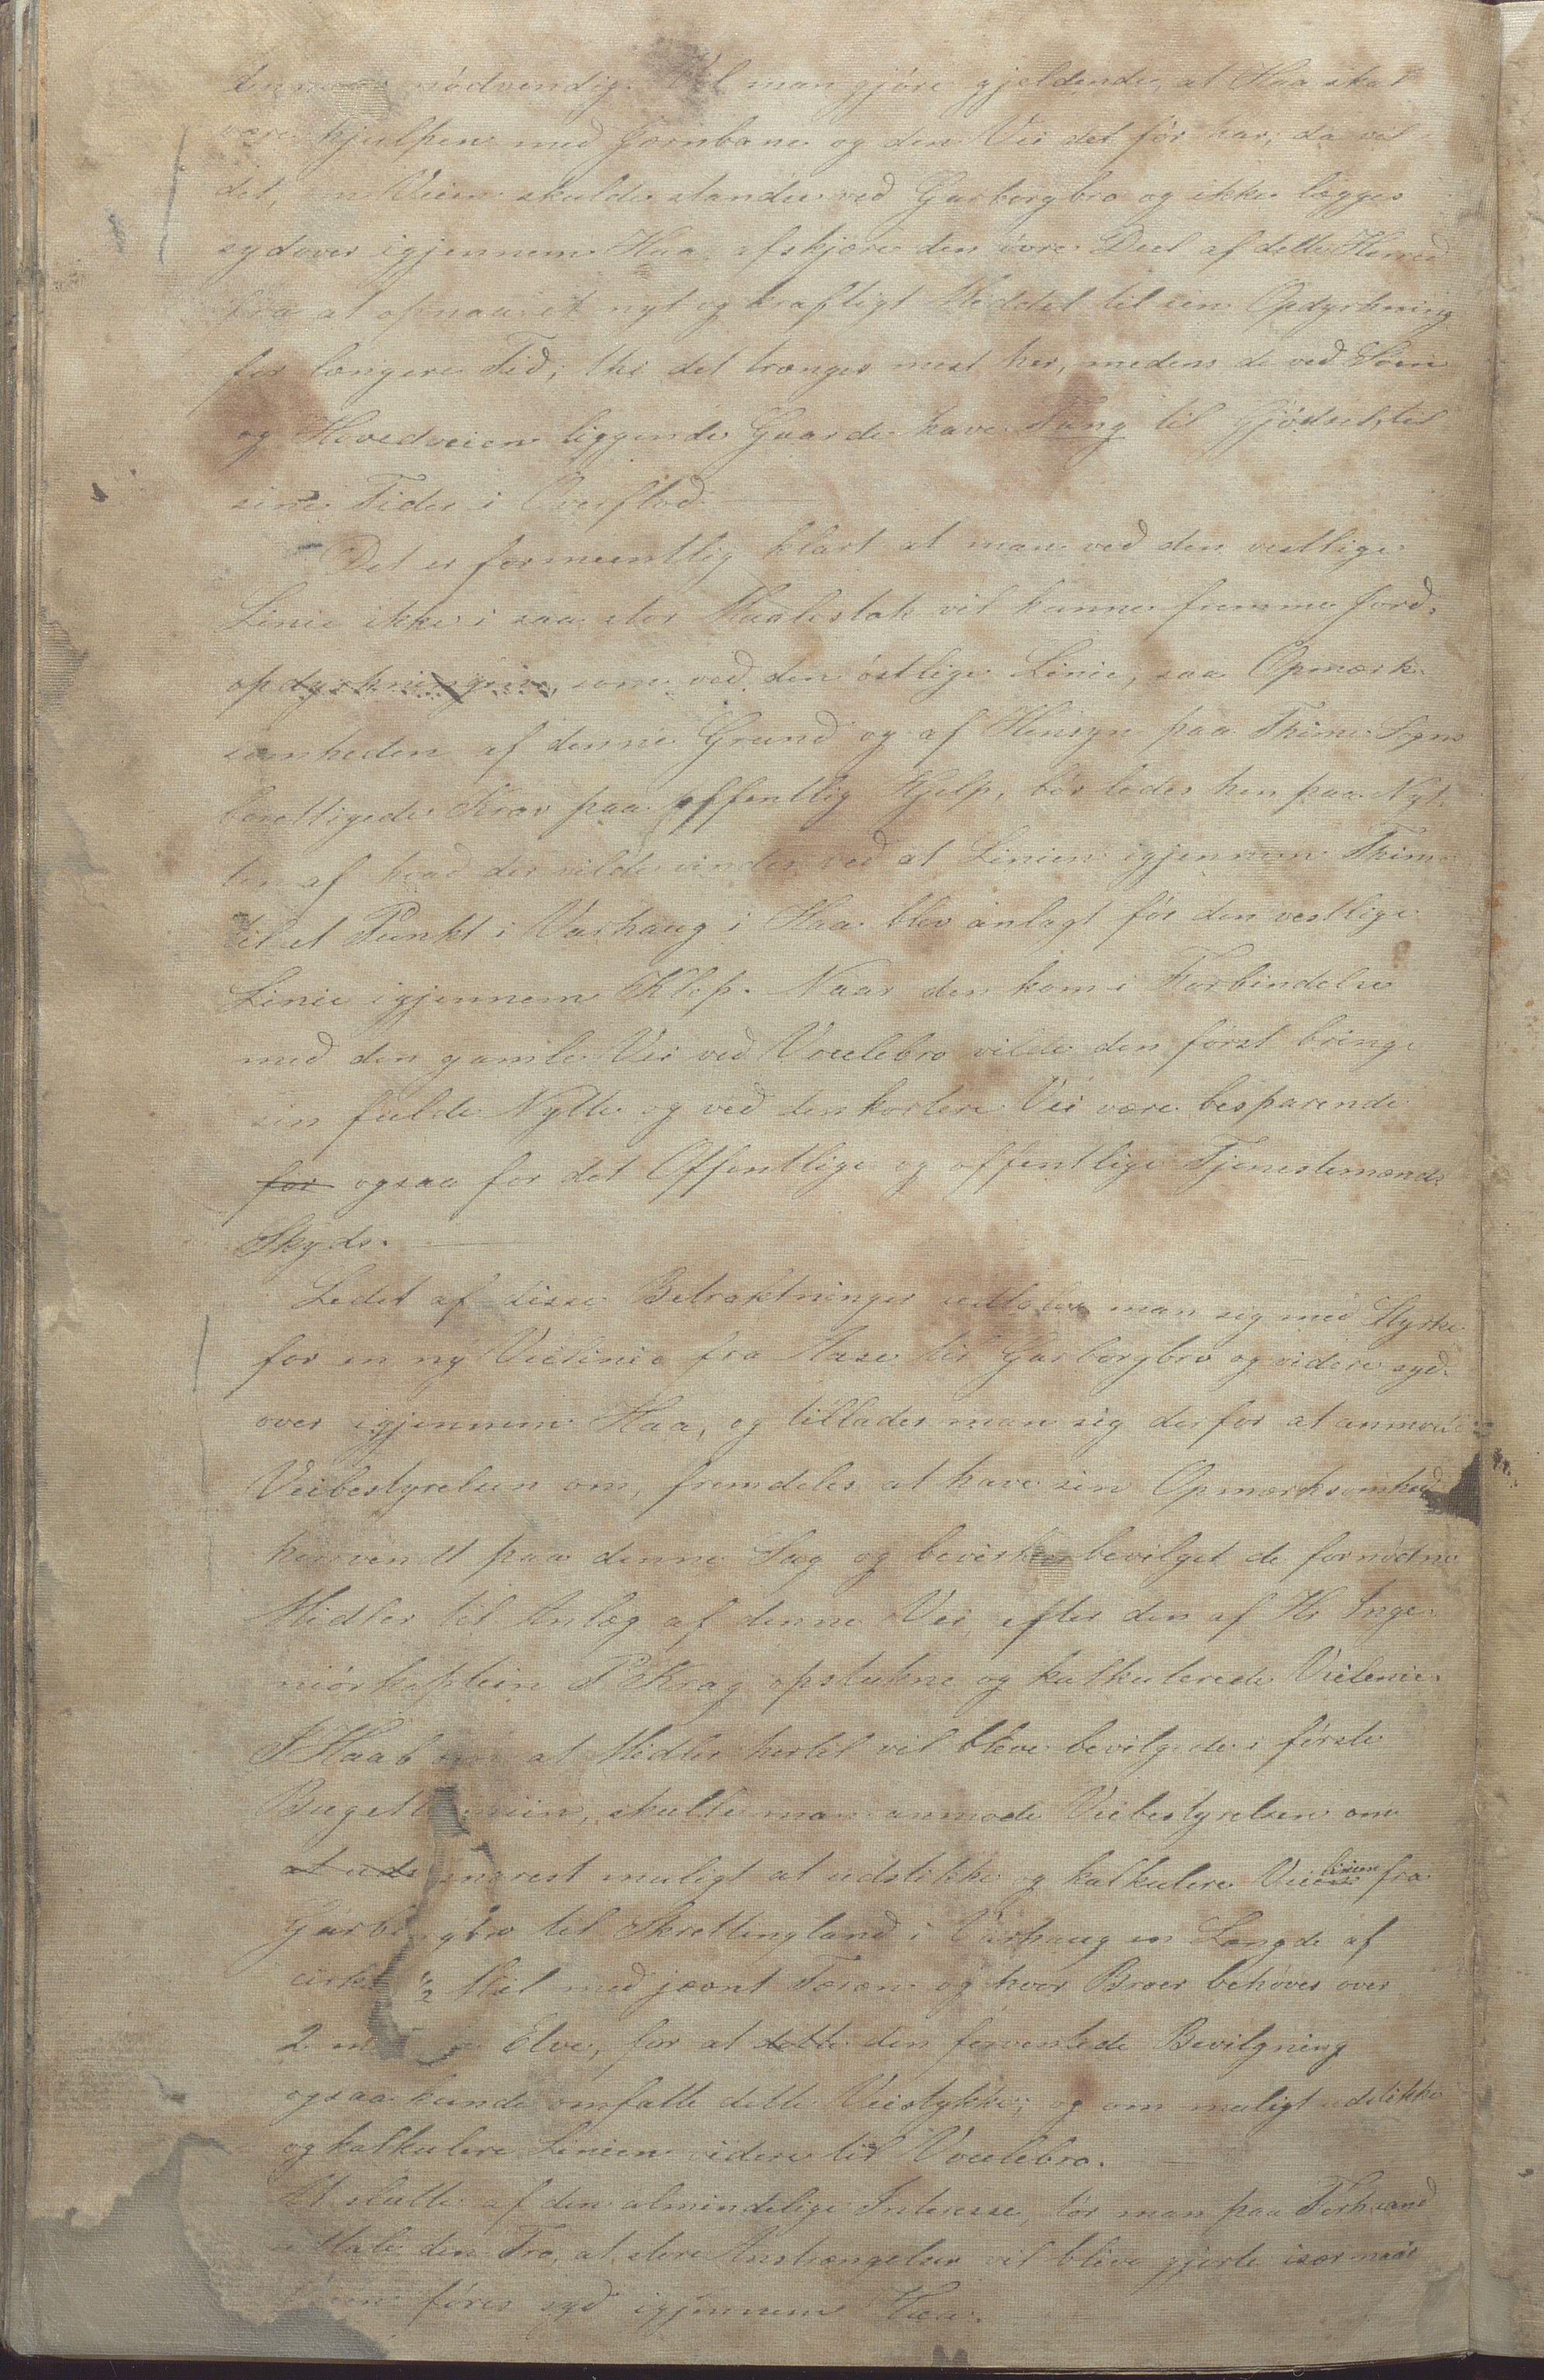 nödvendig. Vil man gjöre gjeldende, at Haa skal
være hjulpen med Jernbane og den Vei det för har; da vil
det, om Veien skulde standse ved Garborgbro og ikke lægges
sydover igjennem Haa afskjære den övre Deel af dette Herred
fra at opnaa et nyt og kraftigt Middel til sin Opdyrkning
for længere Tid; thi det trænges mest her, medens de ved Söen
og Hovedveien liggende Gaarde have Tang til Gjödsel, til
sine Tider i Overflod.
Det er formeentlig klart at man ved den vestlige
Linie ikke i saa stor Maalestok vil kunne fremme Jord-
opdyrkningen, som ved den östlige Linie, saa Opmærk-
somheden af denne Grund og af Hensyn paa Thime Sogns
berettigede Krav paa offentlig Hjelp, bör ledes hen paa Nyt-
ten af hvad der vilde vindes ved at Linien igjennem Thime
til et Punkt i Varhaug i Haa blev anlagt för den vestlige
Linie igjennem Klep. Naar den kom i Forbindelse
med den gamle Vei ved Voelebro vilde den först bringe
sin fulde Nytte og ved den kortere Vei være besparende
for ogsaa for det Offentlige og offentlige Tjenestemænds
Skyds.
Ledet af disse Betraktninger udtaler man sig med Styrke
for en ny Veilinie fra Aase til Garborgbro og videre syd-
over igjennem Haa, og tillader man sig derfor at anmode
Veibestyrelsen om, fremdeles at have sin Opmærksomhed
henvendt paa denne Sag og bevirke bevilget de fornödne
Midler til Anlæg af denne Vei efter den af Hr Inge-
niörkaptein P Krag opstukne og kalkulerede Veilinie.
I Haab om at Midler hertil vil blive bevilgede i förste
Buget skulle man anmode Veibestyrelsen om
at uds snarest muligt at udstikke og kalkulere Veilinien fra
Garborgbro til Skretlingland i Varhaug en Længde af
cirka 1/2 Mil med jævnt Teræn og hvor Broer behöves over
2 Elve, for at dette den forventede Bevilgning
ogsaa kunde omfatte dette Veistykke; og om muligt udstikke
og kalkulere Linien videre til Voelebro.
At slutte af den almindelige Interesse, tör man paa Forhaand
udtale den Tro, at store Anstrængelser vil blive gjorte især naar
föres syd igjennem Haa.